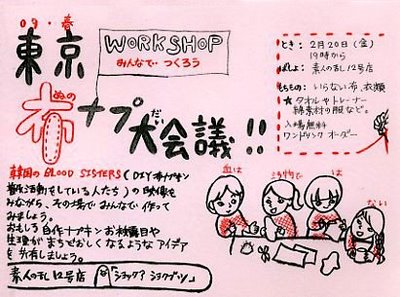 09・春
東京
ぬの
布ナプ大会議!!
だい
WORKSHOP
みんなで つくろう
とき: 2月20日(金)
19時から
ばしょ: 素人の乱12号店
もちもの: いらない布、衣類
★タオルやトレーナー
綿素材の服など。
入場無料
ワンドリンク オーダー
韓国の BLOOD SISTERS (DIY布ナプキン
普及活動をしている人たち)の映像を
みながら、その場でみんなで作って
みましょう。
おもしろ自作ナプキンお披露目や
生理が まちどおしくなるような アイデア
を共有しましょう。
血は
汚物で
は
ない
素人の乱12号店